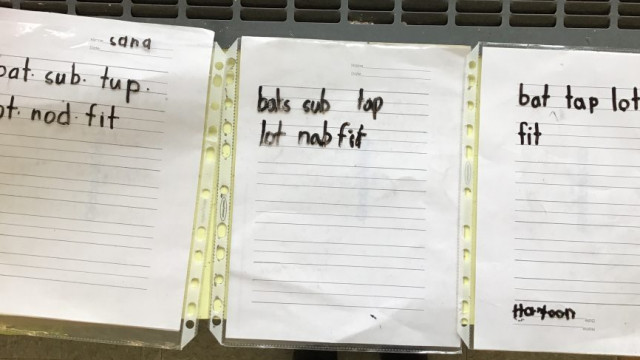 sana
bat. sub. tup.
ot. nod. fit
bats sub tap
lot nab fit
bat tap lot
fit